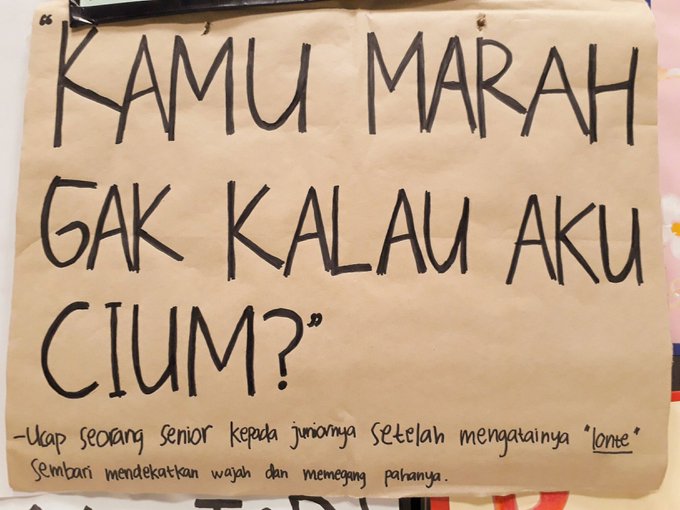 "KAMU MARAH
GAK KALAU AKU
CIUM?"
-Ucap seorang senior kepada juniornya setelah mengatainya "lonte"
sembari mendekatkan wajah dan memegang pahanya.